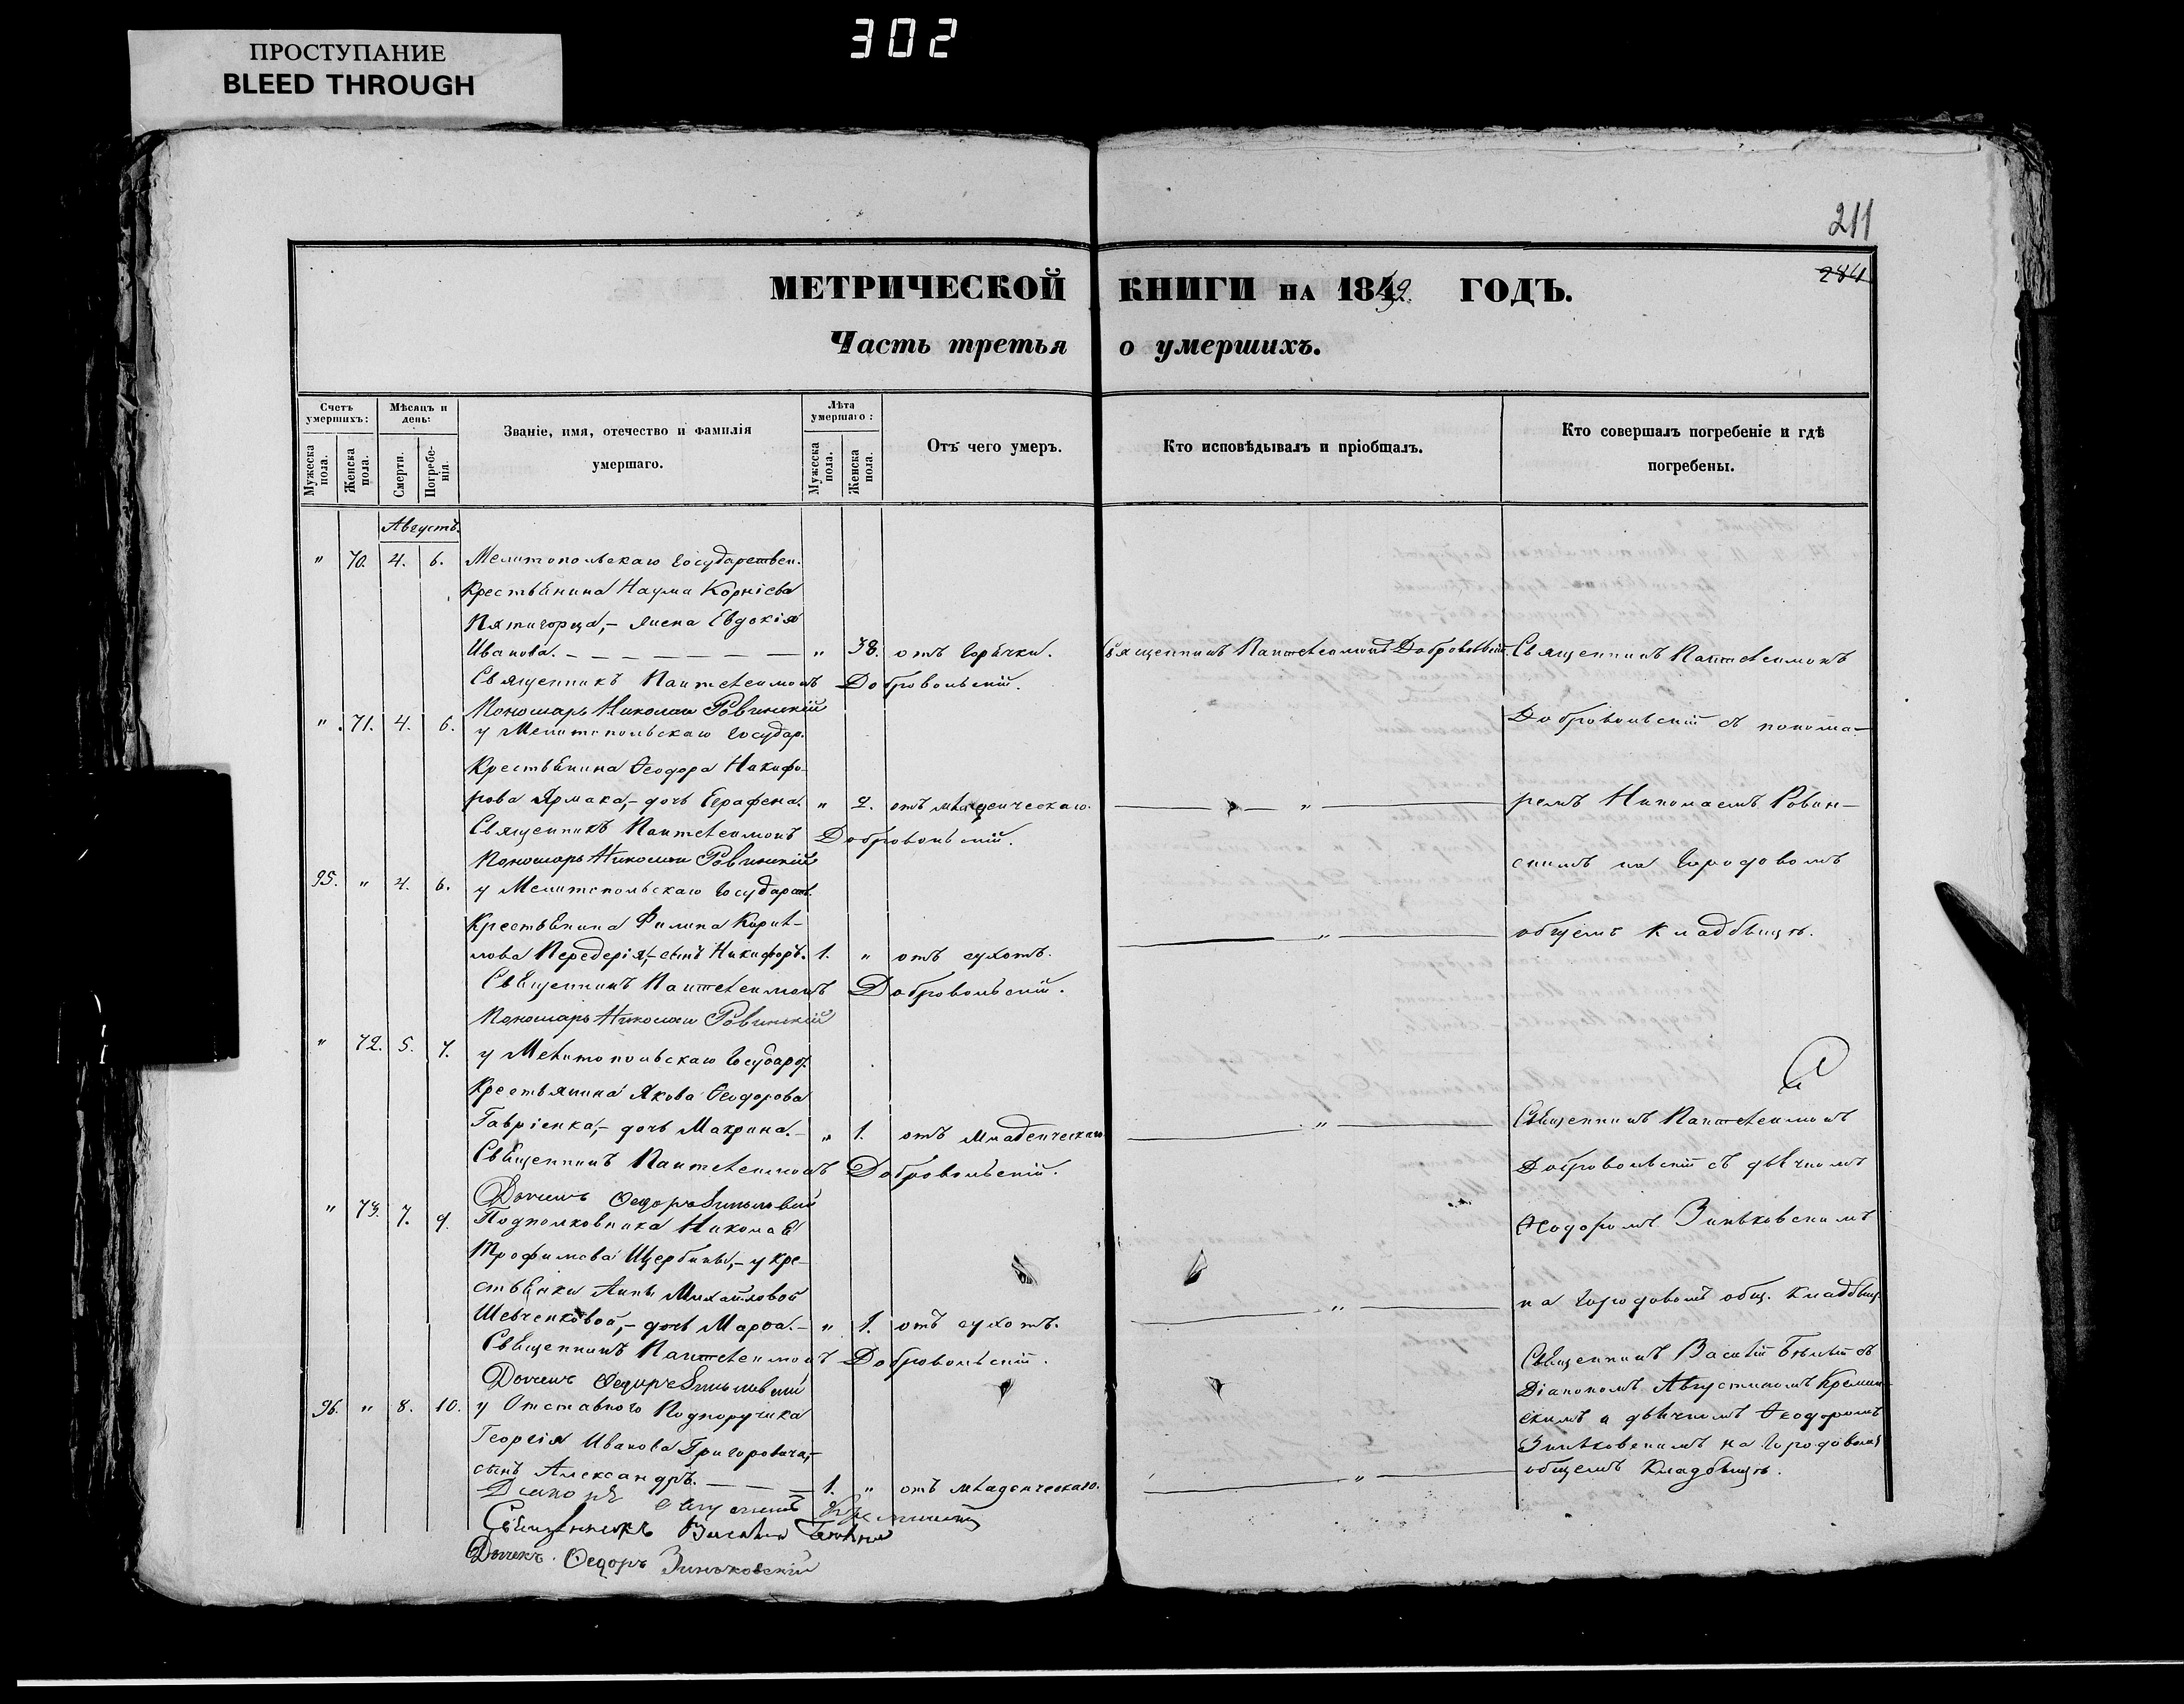 302
ПРОСТУПАНИЕ
BLEED THROUGH
211
284
МЕТРИЧЕСКОЙ КНИГИ НА 1849 ГОДЪ.
Часть третья о умершихъ.
Счетъ умершихъ:
Мужеска пола.
Женска пола.
Мѣсяцъ и день:
Смерти.
Погребенія.
Званіе, имя, отечество и фамилія умершаго.
Лѣта умершаго:
Мужеска пола.
Женска пола.
Отъ чего умеръ.
Кто исповѣдывалъ и пріобщалъ.
Кто совершалъ погребеніе и гдѣ погребены.
Августъ.
" 70. 4. 6. Мелитопольскаго Государствен.
Крестьянина Наума Корніева
Пятигорца,- жена Евдокія
Иванова. - " 38. отъ горячки. Священникъ Пантелеимонъ Добровольскій. Священникъ Пантелеимонъ
Священникъ Пантелеимонъ Добровольскій.
Пономарь Николай Ровинскій
Добровольскій съ понома-
" 71. 4. 6. у Мелитопольскаго Государ.
Крестьянина Ѳеодора Никифо-
рова Ярмака,- дочь Серафема. " 2. отъ младенческаго. — " — ремъ Николаемъ Ровин-
Священникъ Пантелеимонъ Добровольскій.
Пономарь Николай Ровинскій
скимъ на Городовомъ
95. " 4. 6. у Мелитопольскаго Государств.
Крестьянина Филипа Кирил-
лова Передерія,- сынъ Никифоръ. 1. " отъ сухотъ. — " — общемъ кладбищѣ.
Священникъ Пантелеимонъ Добровольскій.
Пономарь Николай Ровинскій
" 72. 5. 7. у Мелитопольскаго Государ.
Крестьянина Якова Ѳеодорова
Гавріенка,- дочь Макрина. - " 1. отъ младенческаго — " — Священникъ Пантелеимонъ
Священникъ Пантелеимонъ Добровольскій.
Добровольскій съ дьячкомъ
Дьячекъ Ѳедоръ Зиньковскій
" 73. 7. 9. Подполковника Николая
Ѳеодоромъ Зиньковскимъ
Трофимова Щербины,- у кре-
стьянки Анны Михайловой
на городовомъ общ. кладбищ.
Шевченковой,- дочь Марѳа. - " 1. отъ сухотъ. — " —
Священникъ Пантелеимонъ Добровольскій.
Дьячекъ Ѳедоръ Зиньковскій
Священникъ Василій съ
Діакономъ Августиномъ Кремян-
96. " 8. 10. у Отставного Подпоручика
скимъ и дьячкомъ Ѳеодоромъ
Георгія Иванова Григоровича,-
Зиньковскимъ на городовомъ
сынъ Александръ. — 1. " отъ младенческаго. — " — общемъ кладбищѣ.
Діаконъ
Священникъ Василій
Дьячекъ Ѳедоръ Зиньковскій